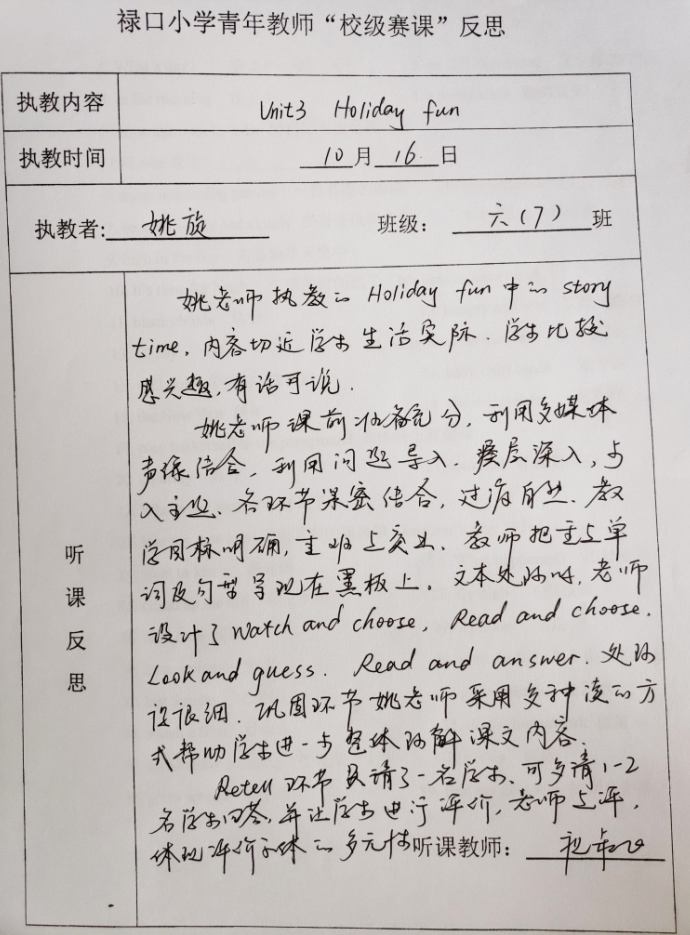 禄口小学青年教师“校级赛课”反思
执教内容 Unit3 Holiday fun
执教时间 10月16日
执教者: 姚旋 班级: 六(7)班
听课反思
姚老师执教的 Holiday fun 中的 story
time, 内容切近学生生活实际. 学生比较
感兴趣, 有话可说.
姚老师课前准备充分, 利用多媒体
声像结合, 利用问题导入. 层深入, 点
入主题. 各环节紧密结合, 过渡自然. 教
学目标明确, 重难点突出. 教师把重点单
词及句型呈现在黑板上. 文本处理时, 老师
设计了 Watch and choose, Read and choose.
Look and guess. Read and answer. 处理
很细. 巩固环节姚老师采用多种读的方
式帮助学生进一步整体理解课文内容.
Retell 环节只请了一名学生, 可多请1-2
名学生回答, 并让学生进行评价, 老师点评,
体现评价主体的多元性
听课教师: